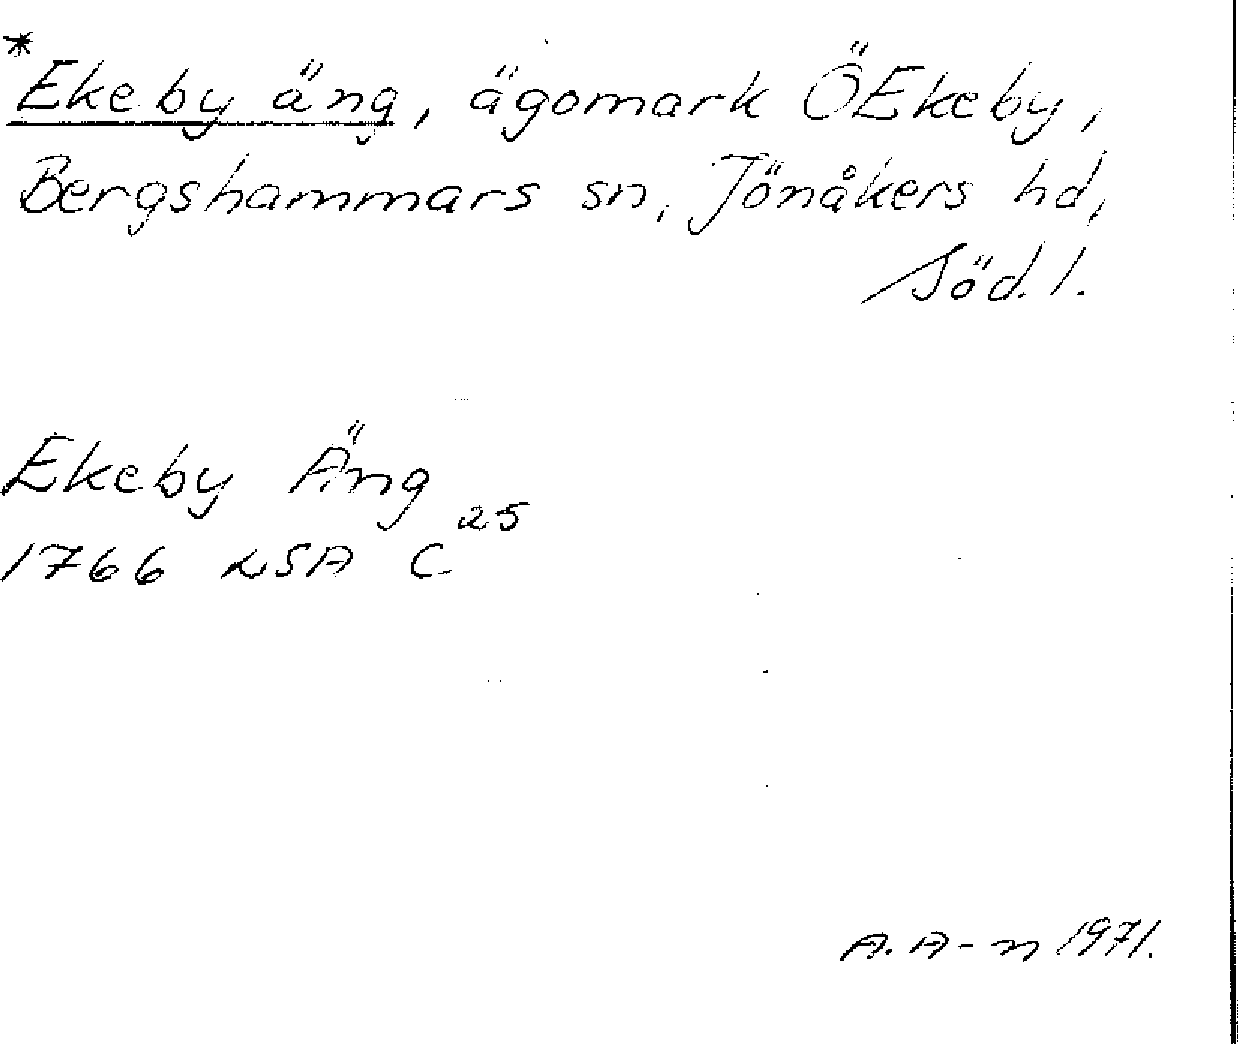 *Ekeby äng, ägomark ÖEkeby,
Bergshammars sn, Jönåkers hd,
Söd. l.
Ekeby Äng
1766 LSA C25
A. A-n 1971.